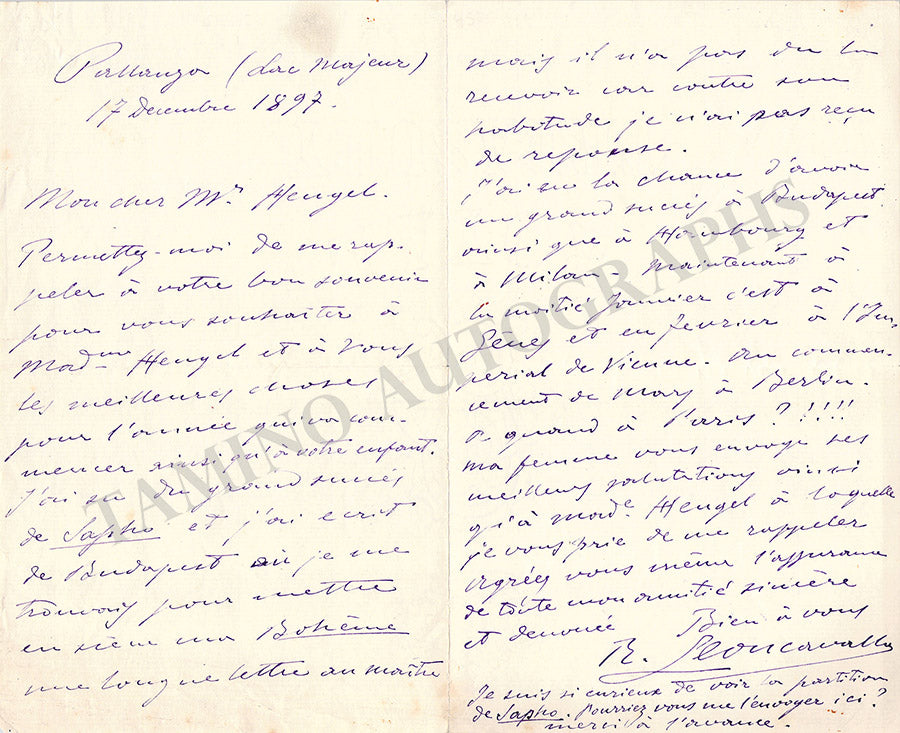 Pallanza (Lac Majeur)
17 Decembre 1897.
Mon cher Mr. Heugel.
Permettez-moi de me rap-
peler à votre bon souvenir
pour vous souhaiter à
Madme Heugel et à vous
les meilleures choses
pour l'année qui va com-
mencer ainsi qu'à votre enfant.
J'ai su du grand succès
de Sapho et j'ai ecrit
de Budapest où je me
trouvais pour mettre
en scène ma Bohême
une longue lettre au maître
mais il n'a pas du la
recevoir car contre son
habitude je n'ai pas reçu
de reponse.
J'ai eu la chance d'avoir
un grand succès à Budapest
ainsi que à Hambourg et
à Milan. Maintenant à
la moitié Janvier c'est à
Gênes et en fevrier à l'Im-
perial de Vienne. Au commen-
cement de Mars à Berlin.
A quand à Paris? !!!!
Ma femme vous envoye ses
meilleurs salutations ainsi
qu'à Made Heugel à laquelle
je vous prie de me rappeler
Agréez vous même l'assurance
de toute mon amitié sincère
et devouée
Bien à vous
R. Leoncavallo
Je suis si curieux de voir la partition
de Sapho. Pourriez vous me l'envoyer ici?
merci à l'avance.
TAMINO AUTOGRAPHS